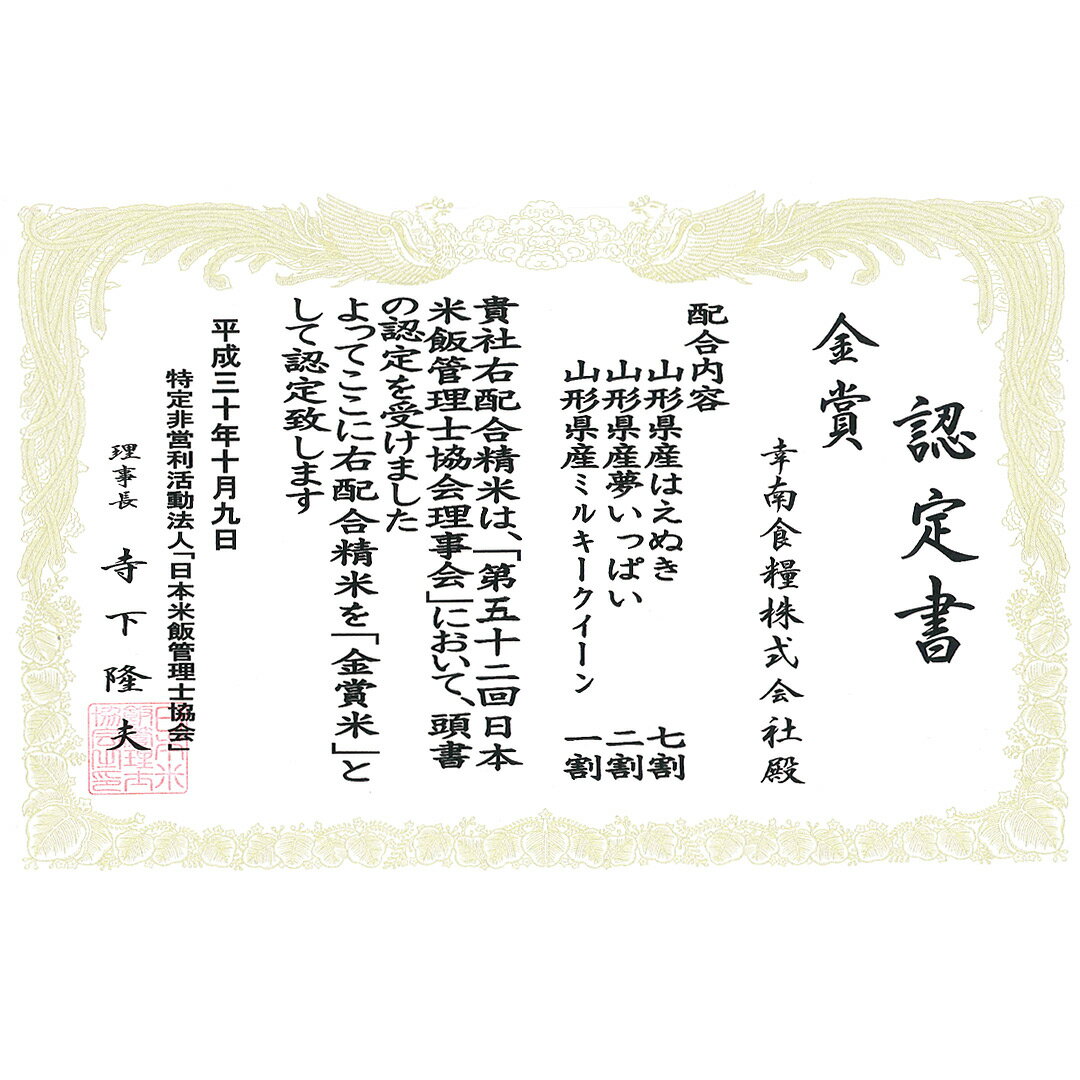 認定書
金賞
幸南食糧株式会社殿
配合内容
山形県産はえぬき 七割
山形県産夢いっぱい 二割
山形県産ミルキークイーン 一割
貴社右配合精米は、「第五十二回日本
米飯管理士協会理事会」において、頭書
の認定を受けました
よってここに右配合精米を「金賞米」と
して認定致します
平成三十年十月九日
特定非営利活動法人「日本米飯管理士協会」
理事長 寺下隆夫
日本米
飯管理士
協会之印